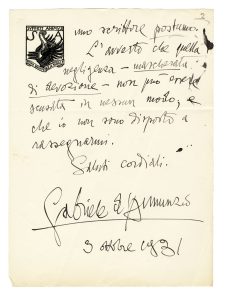 2
uno scrittore postumo.
L'avverto che quella
negligenza – mascherata
di devozione – non può essere
scusata in nessun modo; e
che io non sono disposto a
rassegnarmi.
Saluti cordiali.
Gabriele d'Annunzio
3 ottobre 1931